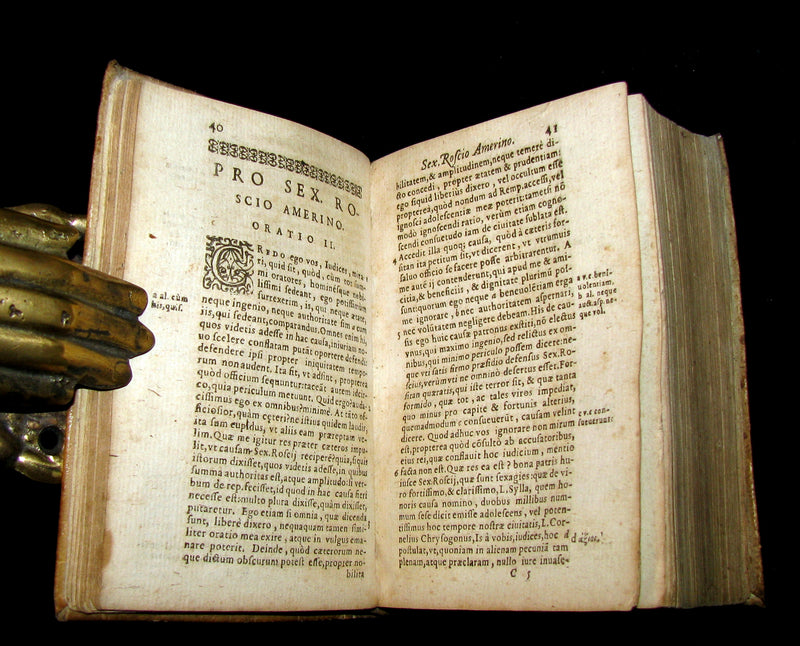 40
PRO SEX. RO-
SCIO AMERINO.
ORATIO II.
CREDO ego vos, Iudices, mira
ri, quid sit, quòd, cùm tot sum-
mi oratores, hominésque nobi-
lissimi sedeant, ego potissimùm
surrexerim, is, qui neque ætate,
neque ingenio, neque authoritate sim cum
iis, qui sedeant, comparandus. Omnes enim hi,
quos videtis adesse in hac causa, iniuriam no-
uo scelere conflatam putāt oportere defendi:
defendere ipsi propter iniquitatem tempo-
rum non audent. Ita fit, vt adsint, propterea
quòd officium sequuntur: taceāt autem idcir-
co, quia periculum metuunt. Quid ergo? auda-
cissimus ego ex omnibus? minimè. At tāto of-
ficiosior, quàm cęteri? ne istius quidem laudis
ita sum cupidus, vt aliis eam præreptam ve-
lim. Quæ me igitur res præter cæteros impu-
lit, vt causam Sex. Roscij reciperē? quia, si quis
istorum dixisset, quos videtis adesse, in quibus
summa authoritas est, atque amplitudo: si ver-
bum de rep. fecisset, id quod in hac causa fieri
necesse est: multo plura dixisse, quàm dixisset,
putaretur. Ego etiam si omnia, quæ dicenda
sunt, liberè dixero, nequaquam tamen simi-
liter oratio mea exire, atque in vulgus ema-
nare poterit. Deinde, quòd cæterorum ne-
que dictum obscurum potest esse, propter no-
bilita
a al. cùm
Sex. Roscio Amerino. 41
bilitatem, & amplitudinem, neque temerè di-
cto concedi, propter ætatem & prudentiam:
ego si quid liberius dixero, vel occultum esse
propterea, quòd nondum ad Remp. accessi, vel
ignosci adolescentiæ meæ poterit: tametsi nō
modò ignoscendi ratio, verùm etiam cogno-
scendi consuetudo iam de ciuitate sublata est.
4 Accedit illa quoq; causa, quòd à cæteris for-
sitan ita petitum sit, vt dicerent, vt vtrumuis
saluo officio se facere posse arbitrarentur. A
me autē ij contenderunt, qui apud me & ami-
citia, & beneficiis, & dignitate plurimū pos-
sunt: quorum ego neque a beneuolētiam erga
me ignorare, b nec authoritatem aspernari,
nec volūtatem negligere debeam. His de cau-
5 sis ego huic causæ patronus exstiti, nō electus
vnus, qui maximo ingenio, sed relictus ex om-
nibus, qui minimo periculo possem dicere: ne-
que vti satis firmo præsidio defensus Sex. Ro-
scius, verùm vti ne omninò desertus esset. For-
sitan quæratis, qui iste terror sit, & quæ tanta
formido, quæ tot, ac tales viros impediat,
quo minus pro capite & fortunis alterius,
quemadmodum c consueuerūt, causam velint
dicere. Quod adhuc vos ignorare non mirum
est, propterea quòd cōsultò ab accusatoribus,
eius rei, quæ conflauit hoc iudicium, mentio
6 facta non est. Quæ res ea est? bona patris hu-
iusce Sex. Roscij, quæ sunt sexagies: quæ de vi-
ro fortissimo, & clarissimo, L. Sylla, quem ho-
noris causa nomino, duobus millibus num-
mum sese dicit emisse adolescens, vel poten-
tissimus hoc tempore nostræ ciuitatis, L. Cor-
nelius Chrysogonus, Is à vobis, iudices, hoc d
postulat, vt, quoniam in alienam pecuniā tam
plenam, atque præclaram, nullo iure inuase-
C 5
a v.c. beni-
uolentiam.
b al. neque
aut. asp. ne-
que vol.
c v.c. con-
sueuerunt